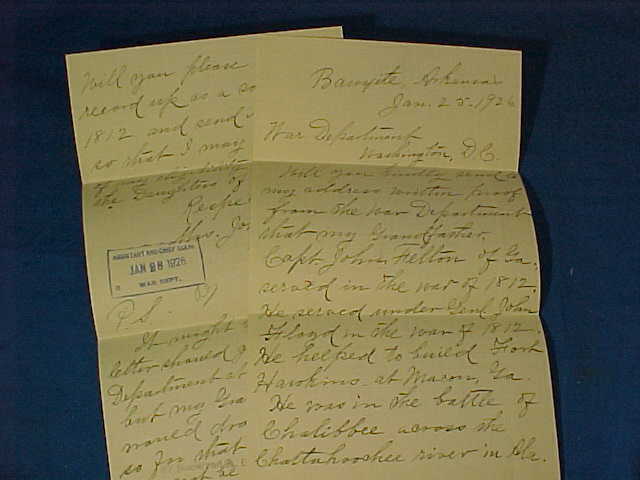 Bauxite, Arkansas
Jan. 25. 1926
War Department
Washington, D.C.
Will you kindly send to
my address written proof
from the War Department
that my Grandfather,
Capt John Felton of Ga.
served in the war of 1812.
He served under Genl John
Floyd in the war of 1812.
He helped to build Fort
Hawkins at Macon, Ga.
He was in the battle of
Chalibbee across the
Chattahoochee river in Ala.
Will you please
record up as a so
1812 and send
so that I may
the Daughters of
Respe
Mrs. Jo
ASSISTANT AND CHIEF CLERK
JAN 28 1926
WAR DEPT.
P.S.
It might
letter should g
Department at
but my Gra
would dro
so for that
not be